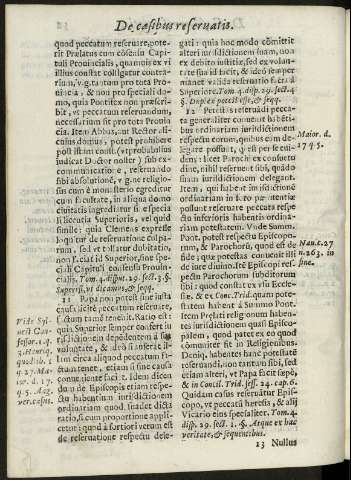 De casibus reseruatis.
quod peccatum reseruare, pote-
rit Prælatus cum consensu Capi-
tuli Prouincialis, quamuis ex vi
illius constat colligatur contra-
rium, v.g. tantum pro tota Pro-
uincia, & non pro speciali do-
mo, quia Pontifex non præscri-
bit, vt peccatum reseruandum,
necessarium sit pro tota Prouin-
cia. Item Abbas, aut Rector ali-
cuius domus, potest prohibere
post ista in consti. (vt probabilius
iudicat Doctor noster) sub ex-
communicatione, reseruando
sibi absolutionē, v.g. ne religio-
sus cum è monasterio egreditur
sine facultate, in aliqua domo
ciuitatis ingrediatur sine especia-
li licentia Superioris, vel quid
simile: quia Clemens expresse
loquitur de reseruatione culpa-
rum, sed vt tollatur dubitatio,
non faciat id Superior, sine spe-
ciali Capituli consensu Prouin-
cialis. Tom. 4. disput. 29. sect. 3. §.
Superest, vt dicamus, & seqq.
11 Papa non potest sine iusta
causa licitè peccatum reseruare,
factum tamē tenet. Ratio est:
quia Superior semper confert iu-
risdictionem independentem à sua
voluntate, & ideò si inferat ili-
tum circa aliquod peccatum fa-
ctum tenet, etiam si sine causa
conueniente faciat. Idem dicen-
dum de Episcopis etiam respe-
ctu habentium iurisdictionem
ordinariam quod suadet dicta
ratio, si cum proportione appli-
cetur: quod à fortiori verum est
de reseruatione respectu dele-
gati: quia hoc modo cōmittit
alteri iurisdictionem suam, non
ex debito iustitiæ, sed ex volun-
tate sua id facit, & ideò semper
manet valida reseruatio facta à
Superiore. Tom. 4. disp. 29. sect. 4.
§. Dupl ex peccatis esse, & seqq.
12 Peccatis reseruandi pecca-
ta generaliter conuenit habētibus
ordinariam iurisdictionem
respectu eorum, quibus eam de-
legare possunt, quod est per se euid-
ens: licet Parochi ex consuetu-
dine, nihil reseruent sibi, quādo
suam iurisdictionem delegant.
Item, qui habet iurisdictionē
ordinariam in foro pœnitentiæ
potest reseruare peccata respe-
ctu inferioris habentis ordina-
riam potestatem. Vnde Summ.
Pont. potest respectu Episcopo-
rum, & Parochorū, quod est de
fide: quæ potestas conuenit illi
de iure diuino. Itē Episcopi res-
pectu Parochorum subditorum
sibi: quod constat ex vsu Eccle-
siæ, & ex Conc. Trid. quam pote-
statem habent à Summo Pont.
Item Prælati religionum haben-
tes iurisdictionem quasi Episco-
palem, quod patet ex eo quod
committit sit in Religionibus.
Deniq. habentes hanc potestatē
reseruandi, non tantùm sibi, sed
etiam alteri, vt Papa facit sæpè,
& in Concil. Trid. sess. 24. cap. 6.
Quidam casus reseruātur Epis-
copo, vt peccatū hæresis, & alij
Vicario eius specialiter. Tom. 4.
disp. 29. sect. 1. §. Atque ex hac
veritate, & sequentibus.
13 Nullus
Maior. d.
17 q. 5.
Nau. c. 27
n. 263. in
fine.
Vide Syl-
uest Con-
fessor. 1. q.
3. Henriq.
quolib. 1.
q. 27. Ma-
ior. d. 17.
q. 5. Aug.
ver. casus.